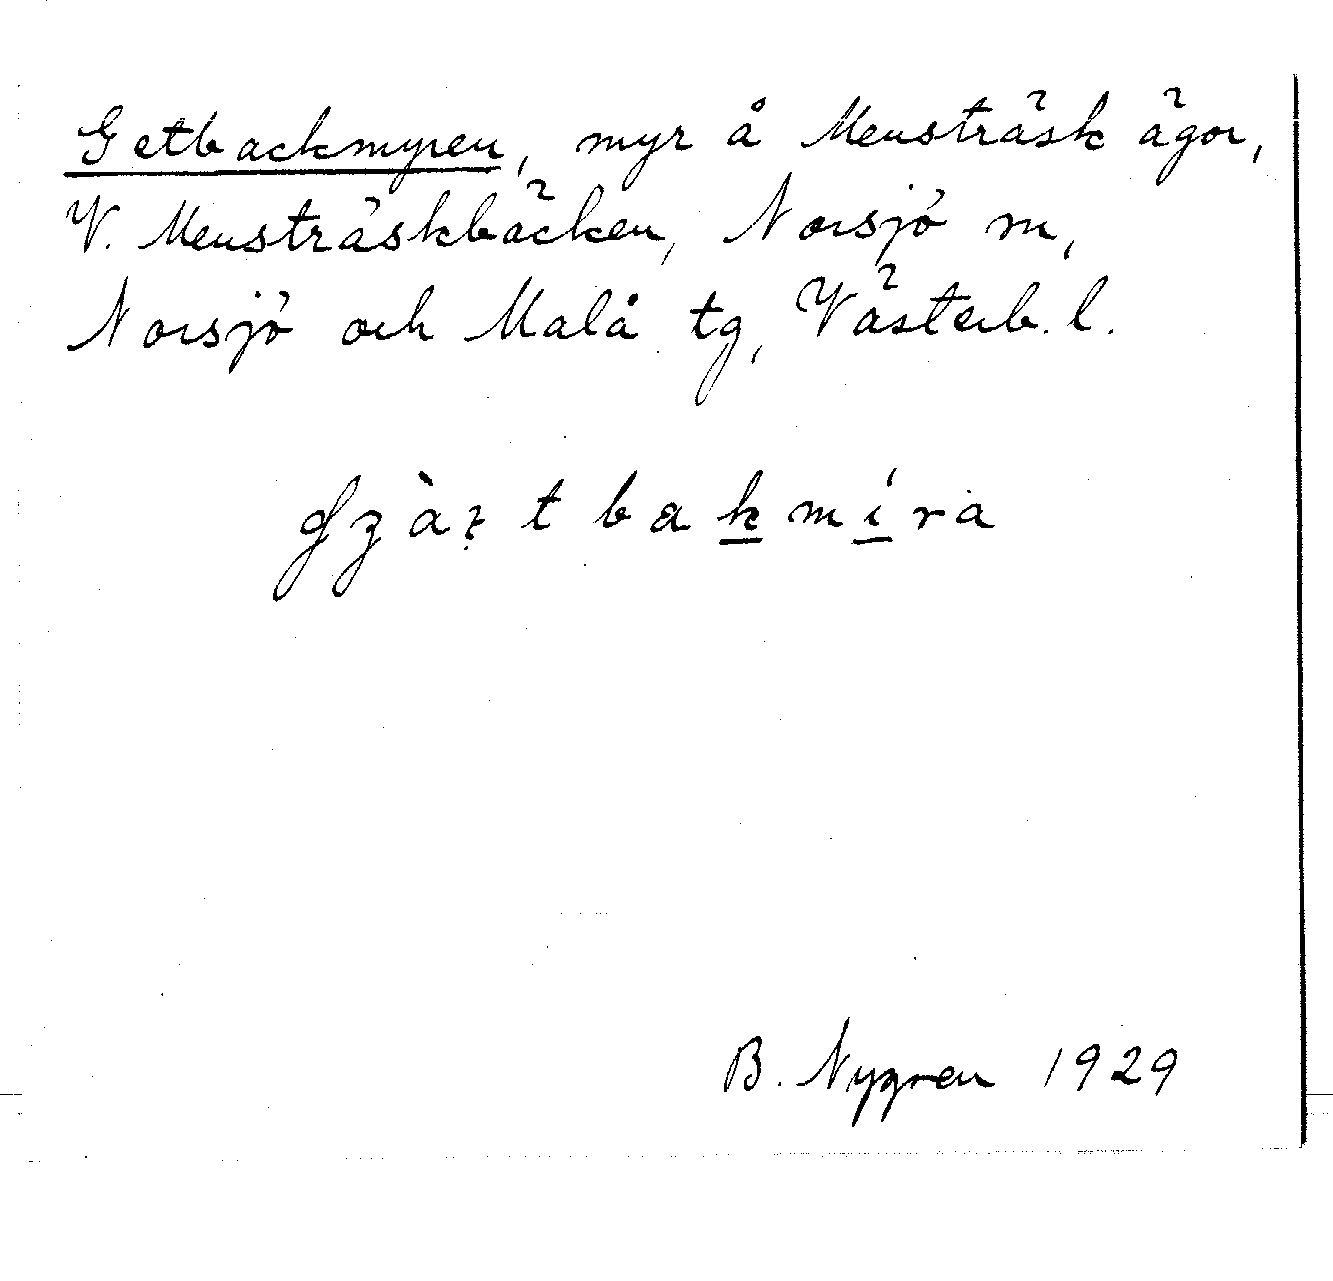 Getbackmyren, myr å Mensträsk ägor,
V. Mensträskbäcken, Norsjö sn,
Norsjö och Malå tg, Västerb. l.
B. Nygren 1929